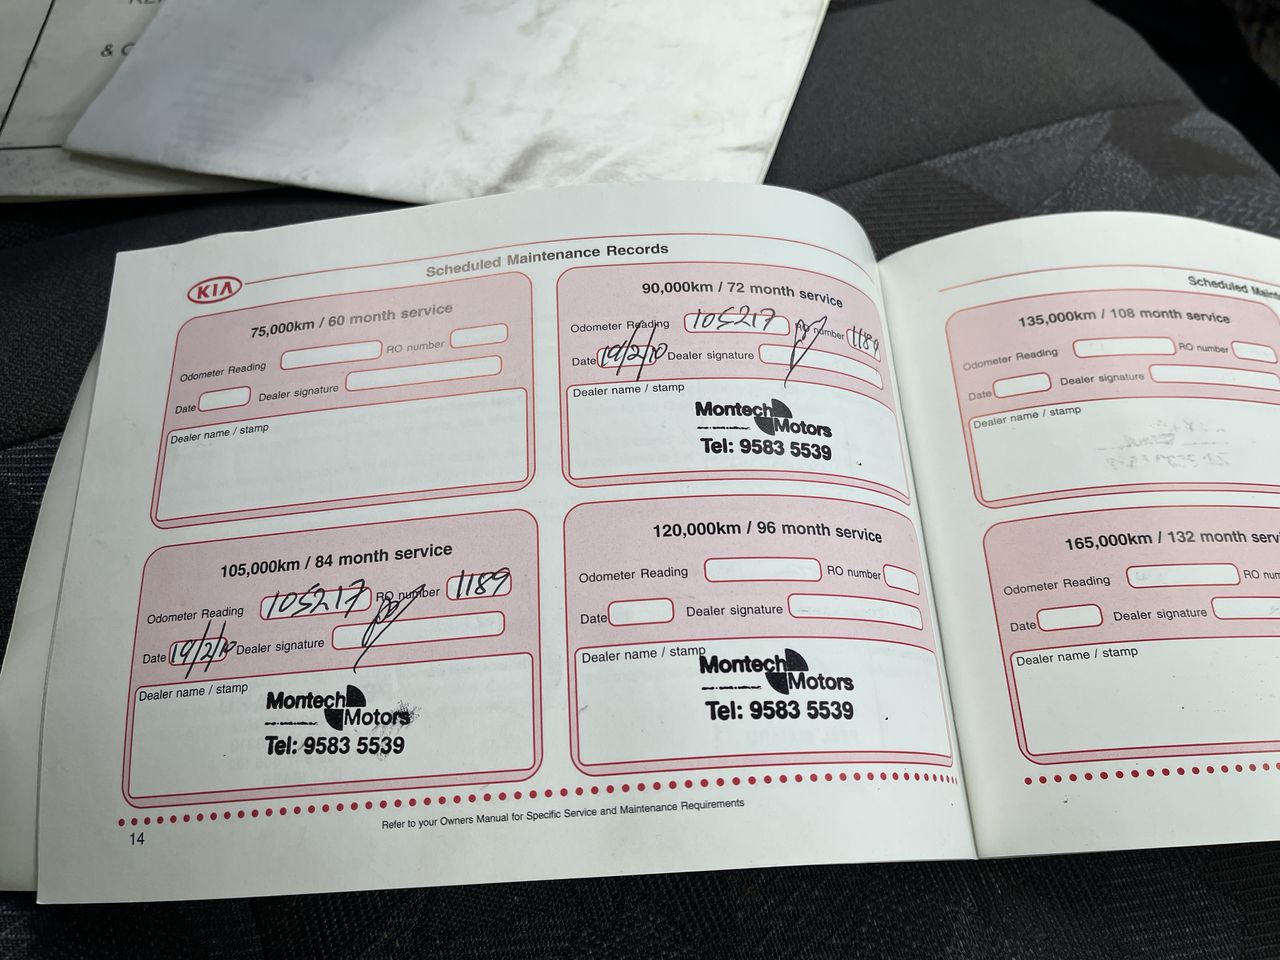 & C
KIA
Scheduled Maintenance Records
75,000km / 60 month service
Odometer Reading RO number
Date Dealer signature
Dealer name / stamp
90,000km / 72 month service
Odometer Reading 105217 RO number 1189
Date 19/2/10 Dealer signature
Dealer name / stamp
Montech
Motors
Tel: 9583 5539
105,000km / 84 month service
Odometer Reading 105217 RO number 1189
Date 19/2/10 Dealer signature
Dealer name / stamp
Montech
Motors
Tel: 9583 5539
120,000km / 96 month service
Odometer Reading RO number
Date Dealer signature
Dealer name / stamp
Montech
Motors
Tel: 9583 5539
Refer to your Owners Manual for Specific Service and Maintenance Requirements
14
Scheduled Maint
135,000km / 108 month service
Odometer Reading RO number
Date Dealer signature
Dealer name / stamp
165,000km / 132 month servi
Odometer Reading RO num
Date Dealer signature
Dealer name / stamp